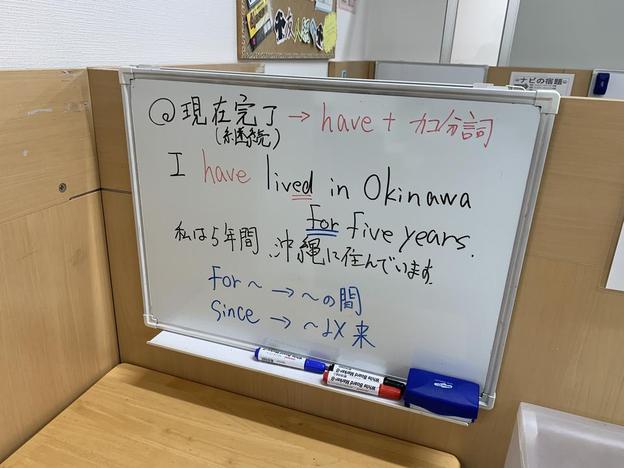 ナビの宿題
◎現在完了 → have + カコ分詞
(継続)
I have lived in Okinawa
for five years.
私は5年間、沖縄に住んでいます。
for ~ → ~の間
since → ~以来
White Board Marker
White Board Marker